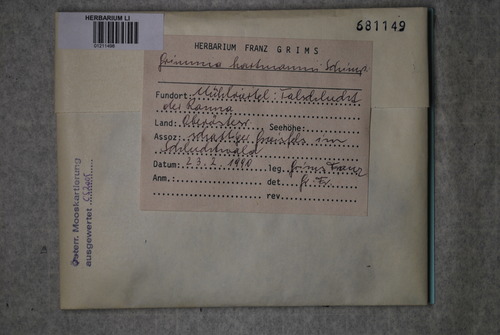 HERBARIUM LI
681149
HERBARIUM FRANZ GRIMS
Grimmia hartmanii Schimp.
Fundort: Mühlviertel: Talschlucht
der Ranna
Land: Oberösterr. Seehöhe:
Assoz: schattiger Granitfels im
Schluchtwald
Datum: 23.2.1990 leg. Grims Franz
Anm.: det. Gr. Fr.
rev.
Österr. Mooskartierung
ausgewertet